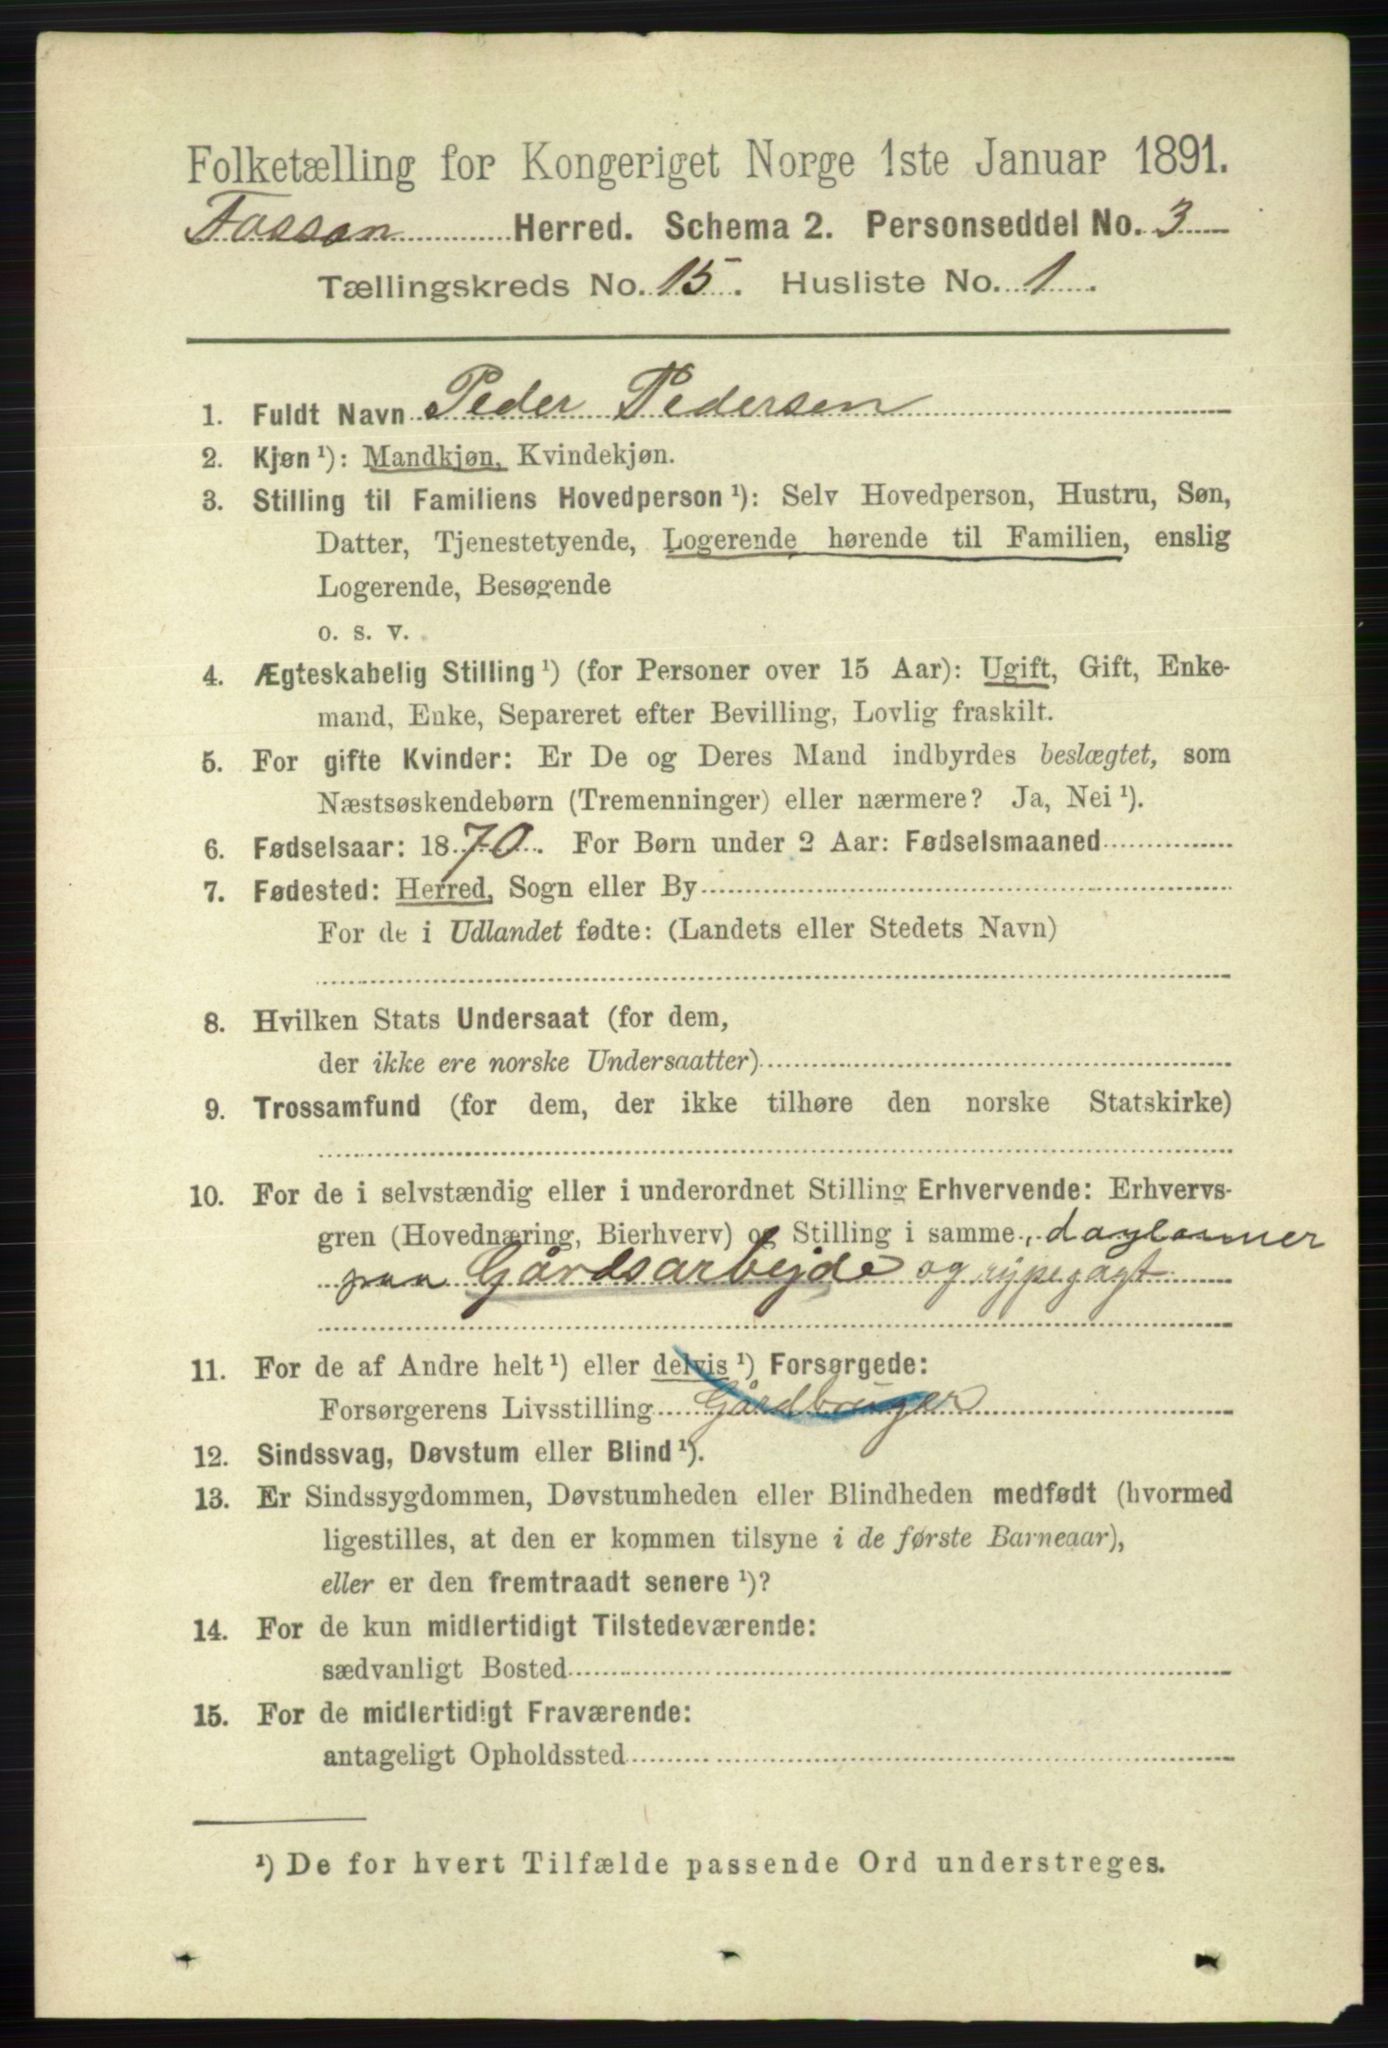 Folketælling for Kongeriget Norge 1ste Januar 1891.
Fossan Herred. Schema 2. Personseddel No. 3
Tællingskreds No. 15. Husliste No. 1.
1. Fuldt Navn Peder Pedersen
2. Kjøn ¹): Mandkjøn, Kvindekjøn.
3. Stilling til Familiens Hovedperson ¹): Selv Hovedperson, Hustru, Søn,
Datter, Tjenestetyende, Logerende hørende til Familien, enslig
Logerende, Besøgende
o. s. v.
4. Ægteskabelig Stilling ¹) (for Personer over 15 Aar): Ugift, Gift, Enke-
mand, Enke, Separeret efter Bevilling, Lovlig fraskilt.
5. For gifte Kvinder: Er De og Deres Mand indbyrdes beslægtet, som
Næstsøskendebørn (Tremenninger) eller nærmere? Ja, Nei ¹).
6. Fødselsaar: 1870. For Børn under 2 Aar: Fødselsmaaned
7. Fødested: Herred, Sogn eller By
For de i Udlandet fødte: (Landets eller Stedets Navn)
8. Hvilken Stats Undersaat (for dem,
der ikke ere norske Undersaatter)
9. Trossamfund (for dem, der ikke tilhøre den norske Statskirke)
10. For de i selvstændig eller i underordnet Stilling Erhvervende: Erhvervs-
gren (Hovednæring, Bierhverv) og Stilling i samme, daglønner
paa Gårdsarbejde og rypejagt
11. For de af Andre helt ¹) eller delvis ¹) Forsørgede:
Forsørgerens Livsstilling Gårdbruger
12. Sindssvag, Døvstum eller Blind ¹).
13. Er Sindssygdommen, Døvstumheden eller Blindheden medfødt (hvormed
ligestilles, at den er kommen tilsyne i de første Barneaar),
eller er den fremtraadt senere ¹)?
14. For de kun midlertidigt Tilstedeværende:
sædvanligt Bosted
15. For de midlertidigt Fraværende:
antageligt Opholdssted
¹) De for hvert Tilfælde passende Ord understreges.